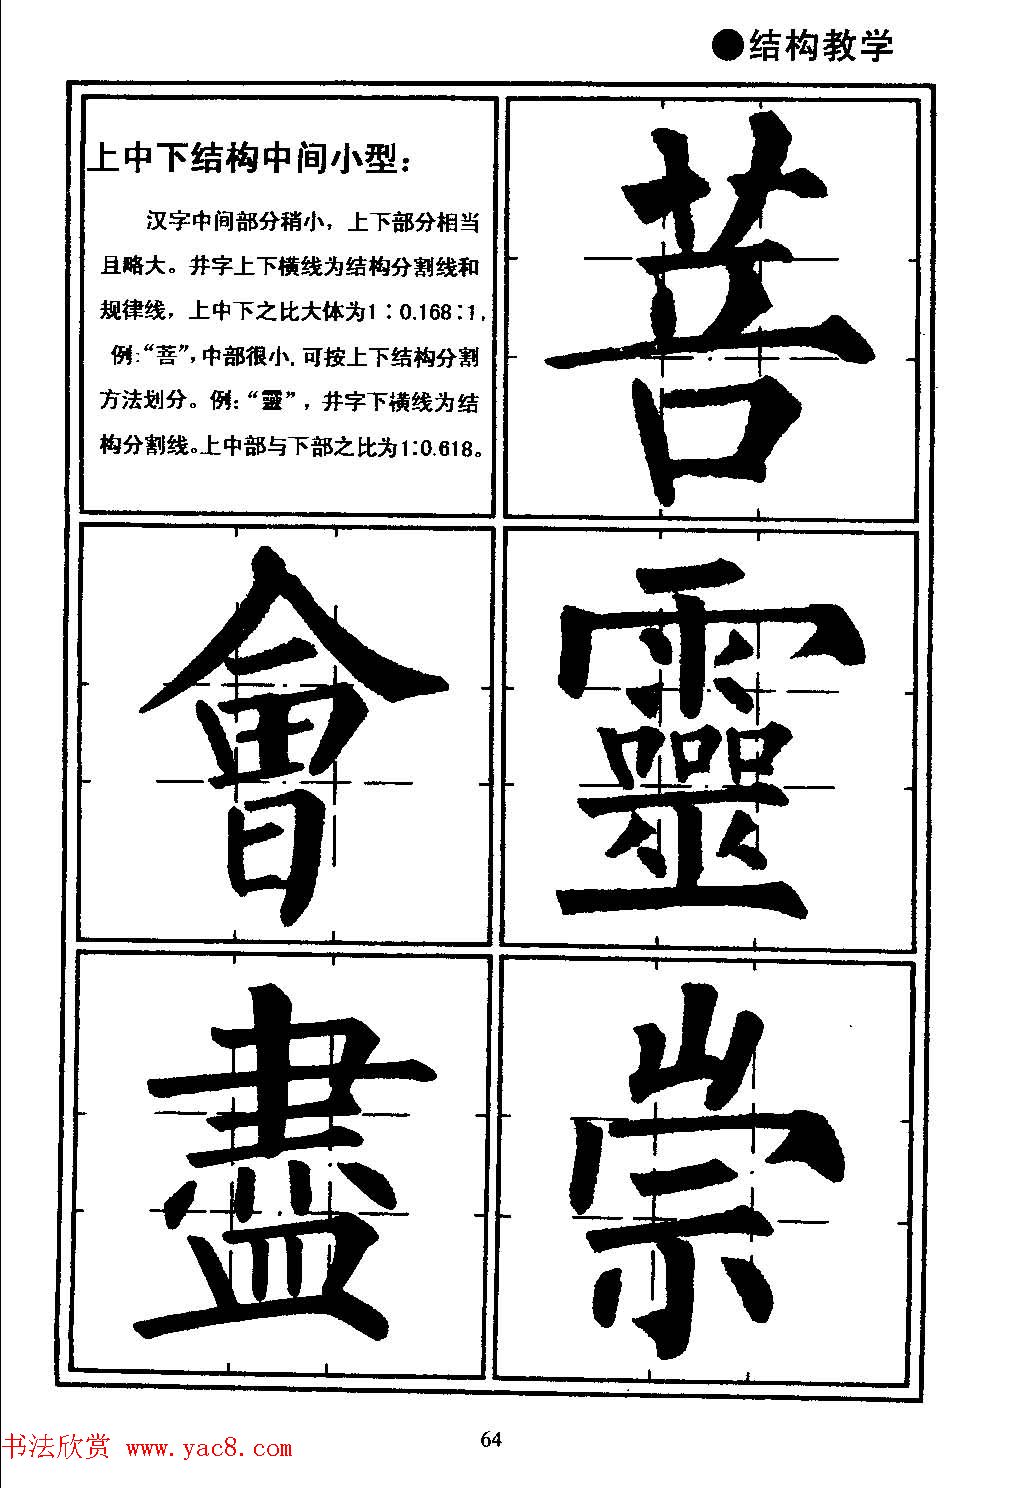 ●结构教学
上中下结构中间小型：
汉字中间部分稍小，上下部分相当
且略大。井字上下横线为结构分割线和
规律线，上中下之比大体为1：0.168：1，
例：“菩”，中部很小，可按上下结构分割
方法划分。例：“靈”，井字下横线为结
构分割线。上中部与下部之比为1：0.618。
菩
會 靈
盡 崇
64
书法欣赏 www.yac8.com